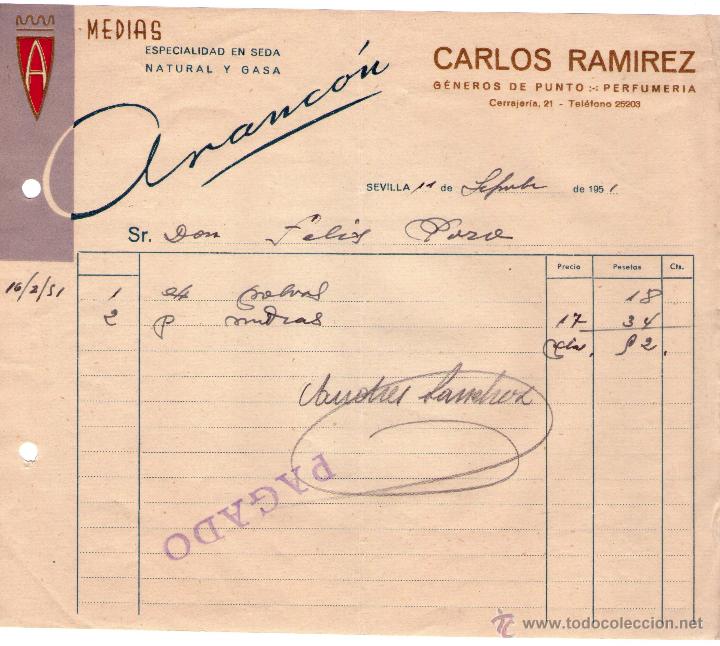 A
MEDIAS
ESPECIALIDAD EN SEDA
NATURAL Y GASA
Arancón
CARLOS RAMIREZ
GÉNEROS DE PUNTO :-: PERFUMERIA
Cerrajería, 21 - Teléfono 25203
SEVILLA 11 de Sepbre de 1951
Sr. Don Felix Pozo
Precio Pesetas Cts.
16/2/51 1 polvos 18
2 p medias 17 34
Ptas. 52.
Andres Sanchez
PAGADO
todocoleccion.net